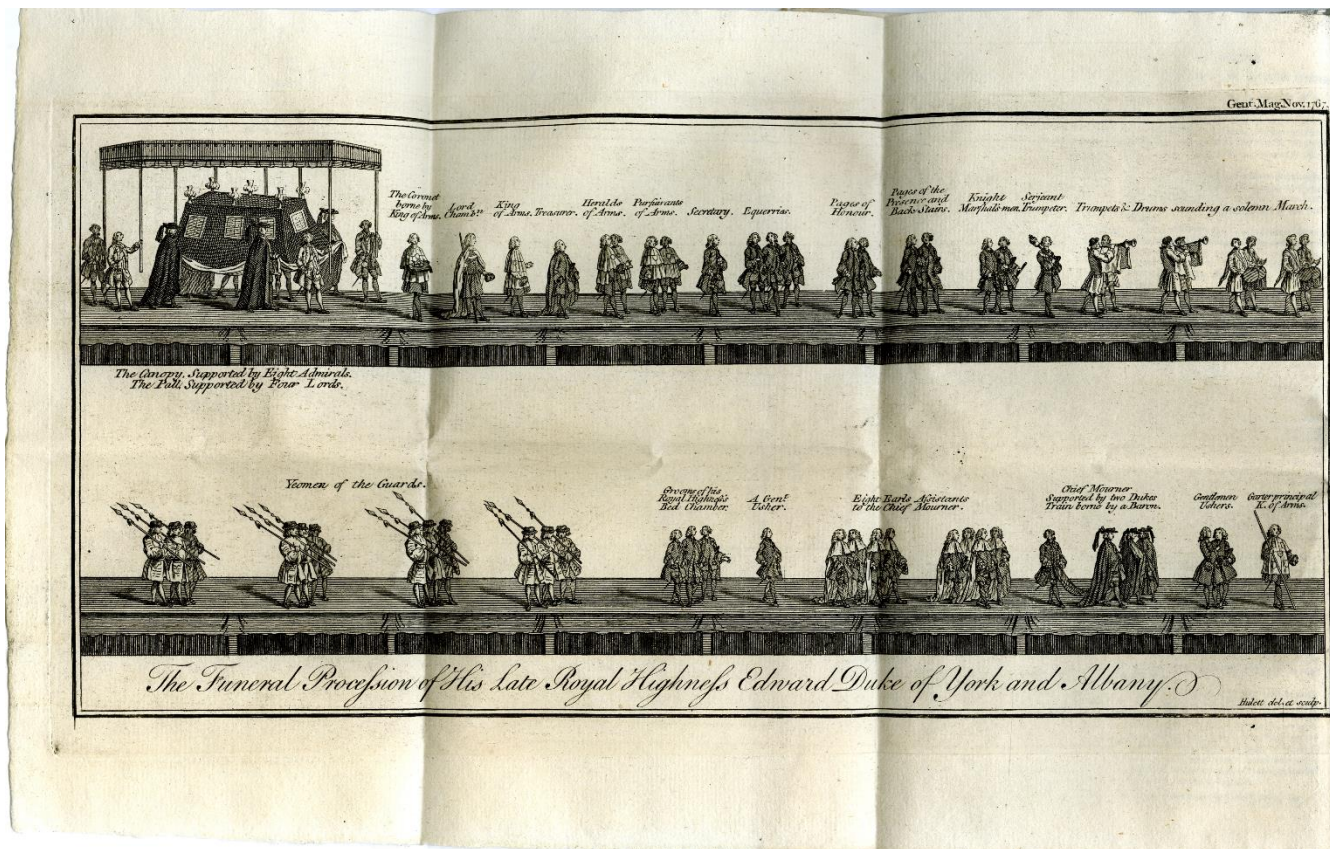 Gent. Mag. Nov. 1767.
The Coronet
borne by
King of Arms.
Lord
Chamb.ⁿ
King
of Arms.
Treasurer.
Heralds
of Arms.
Pursuivants
of Arms.
Secretary.
Equerries.
Pages of
Honour.
Pages of the
Presence and
Back Stairs.
Knight
Marshal's men.
Serjeant
Trumpeter.
Trumpets & Drums sounding a solemn March.
The Canopy, Supported by Eight Admirals.
The Pall, Supported by Four Lords.
Yeomen of the Guards.
Grooms of his
Royal Highness's
Bed Chamber.
A Genᵗ.
Usher.
Eight Earls Assistants
to the Chief Mourner.
Chief Mourner
Supported by two Dukes
Train borne by a Baron.
Gentlemen
Ushers.
Garter principal
K. of Arms.
The Funeral Proceſsion of His Late Royal Highneſs Edward Duke of York and Albany.
Hulett del. et sculp.